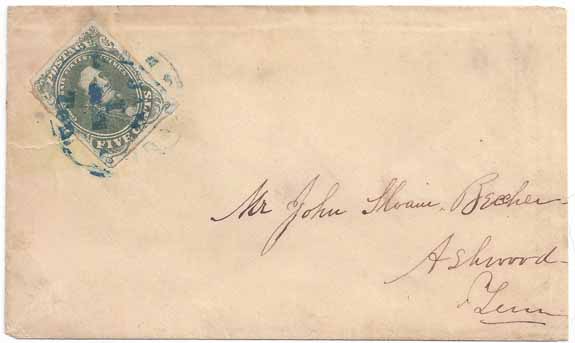 POSTAGE
FIVE CENTS
Mr John Sloain. Beecher
Ashwood
Tenn